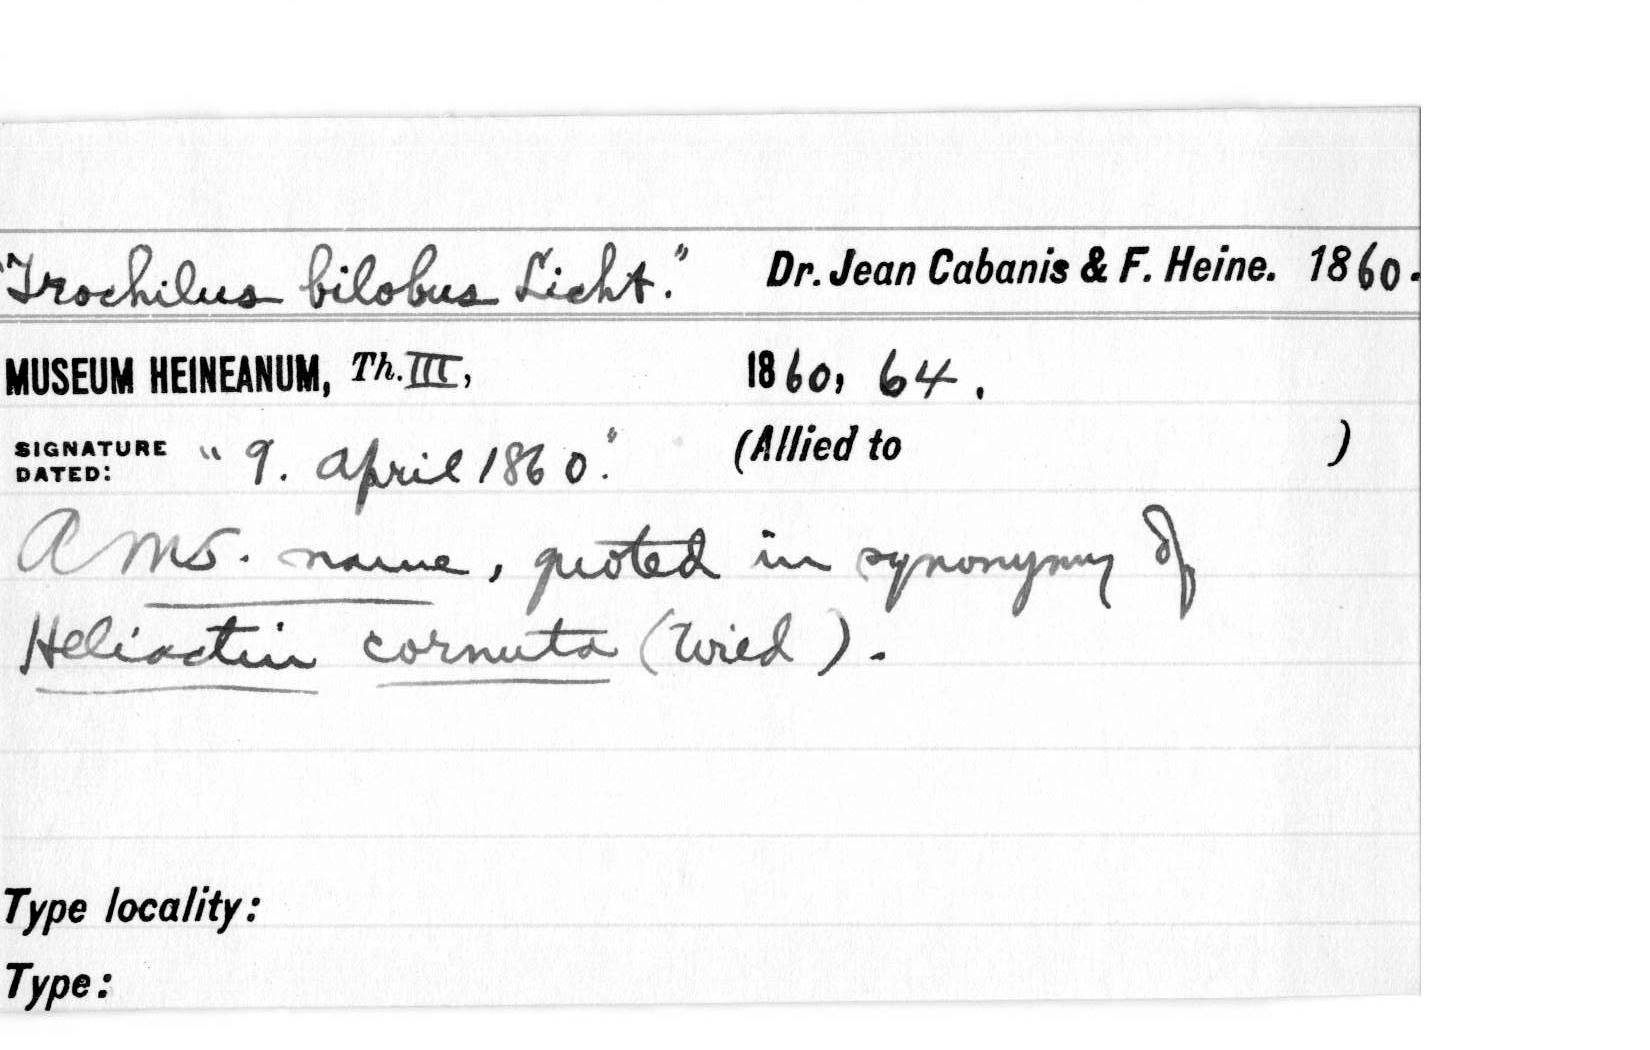 "Trochilus bilobus Licht." Dr. Jean Cabanis & F. Heine. 1860.
MUSEUM HEINEANUM, Th. III, 1860, 64.
SIGNATURE DATED: "9. April 1860." (Allied to )
A MS. name, quoted in synonymy of
Heliactin cornuta (Wied).
Type locality:
Type: